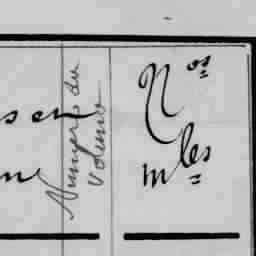 s en
Numéro du
volume
Nos
mles